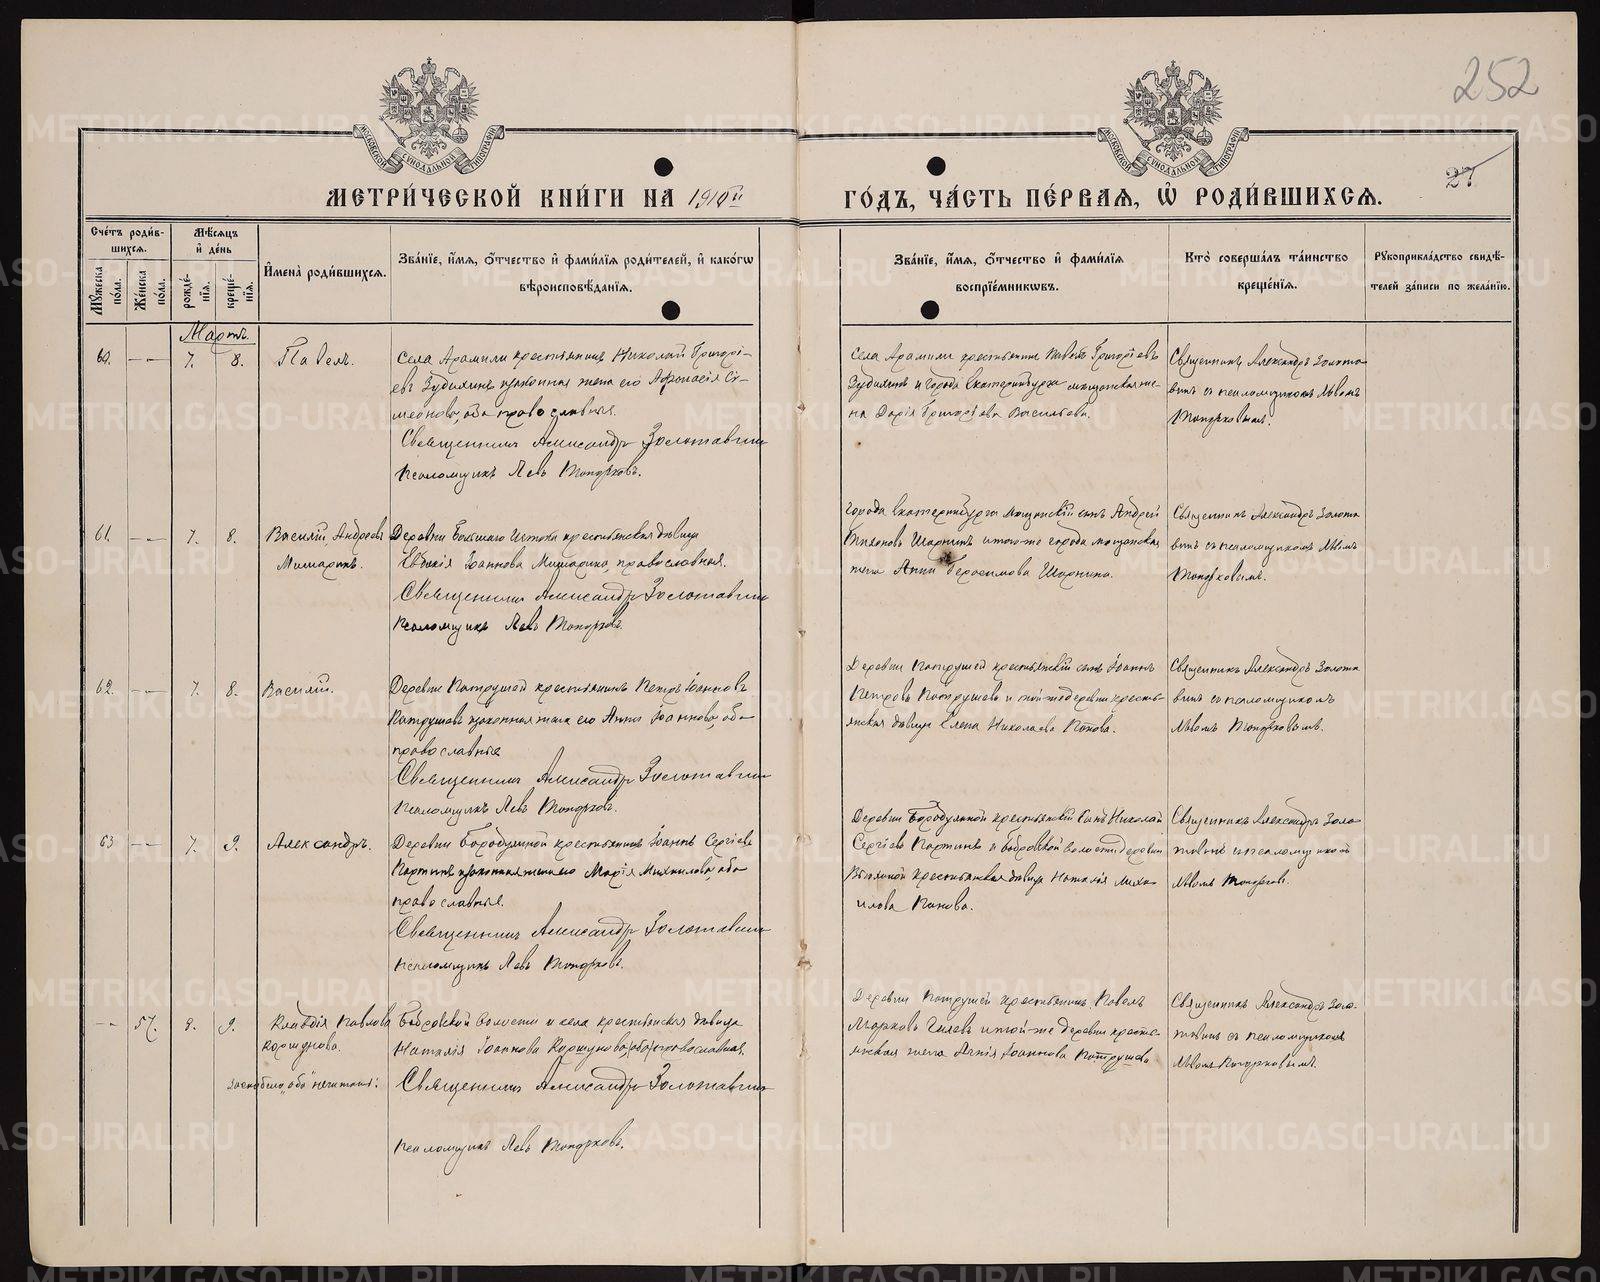 252
27
МОСКОВСКОЙ СѴНОДАЛЬНОЙ ТИПОГРАФІИ
МОСКОВСКОЙ СѴНОДАЛЬНОЙ ТИПОГРАФІИ
МЕТРИ́ЧЕСКОЙ КНИ́ГИ НА 1910й
ГО́ДЪ, ЧА́СТЬ ПЕ́РВАЯ, Ѽ РОДИ́ВШИХСѦ.
Сче́тъ роди́вшихсѧ.
Мꙋ́жеска по́ла.
Же́нска по́ла.
Мѣ́сѧцъ и҆ де́нь
рожде́нїѧ.
креще́нїѧ.
И҆мена̀ роди́вшихсѧ.
Зва́нїе, и҆́мѧ, ѻ҆́тчество и҆ фами́лїѧ роди́телей, и҆ како́гѡ вѣроисповѣ́данїѧ.
Зва́нїе, и҆́мѧ, ѻ҆́тчество и҆ фами́лїѧ воспрїе́мникѡвъ.
Кто̀ соверша́лъ та́инство креще́нїѧ.
Рꙋкоприкла́дство свидѣ́телей за́писи по жела́нїю.
Мартъ.
60. — — 7. 8. Павелъ.
Села Арамили крестьянинъ Николай Григорі-
евъ Зудилинъ, законная жена его Афанасія Си-
меонова, оба православные.
Священникъ Александръ Золотавинъ
Псаломщикъ Левъ Топорковъ.
Села Арамили крестьянинъ Павелъ Григоріевъ
Зудилинъ и города Екатеринбурга мещанская же-
на Дарія Григоріева Васильева.
Священникъ Александръ Золота-
винъ съ псаломщикомъ Львомъ
Топорковымъ.
61. — — 7. 8. Василій, Андреевъ
Мишаринъ.
Деревни Большаго Истока крестьянская дѣвица
Евдокія Іоаннова Мишарина, православная.
Священникъ Александръ Золотавинъ
Псаломщикъ Левъ Топорковъ.
Города Екатеринбурга мещанскій сынъ Андрей
Шарнинъ и того-же города мещанская
жена Анна Герасимова Шарнина.
Священникъ Александръ Золота-
винъ съ псаломщикомъ Львомъ
Топорковымъ.
62. — — 7. 8. Василій.
Деревни Патрушей крестьянинъ Петръ Іоанновъ
Патрушевъ, законная жена его Анна Іоаннова, оба
православные
Священникъ Александръ Золотавинъ
Псаломщикъ Левъ Топорковъ.
Деревни Патрушей крестьянскій сынъ Іоаннъ
Петровъ Патрушевъ и той-же деревни кресть-
янская дѣвица Елена Николаева Попова.
Священникъ Александръ Золота-
винъ съ псаломщикомъ
Львомъ Топорковымъ.
63 — — 7. 9. Александръ.
Деревни Бородулиной крестьянинъ Іоаннъ Сергіевъ
Портинъ, законная жена его Марія Михаилова, оба
православные.
Священникъ Александръ Золотавинъ
Псаломщикъ Левъ Топорковъ.
Деревни Бородулиной крестьянскій сынъ Николай
Сергіевъ Портинъ и Бобровской волости деревни
крестьянская дѣвица Наталія Миха-
илова Панова.
Священникъ Александръ Золо-
тавинъ съ псаломщикомъ
Львомъ Топорковымъ.
— — 57. 9. 9. Клавдія Павлова
Коршунова.
Бобровской волости и села крестьянская дѣвица
Наталія Іоаннова Коршунова, (оба) православная.
заскоблено „оба" нечитать:
Священникъ Александръ Золотавинъ
Псаломщикъ Левъ Топорковъ.
Деревни Патрушей крестьянинъ Павелъ
Марковъ Гилевъ и той-же деревни кресть-
янская жена Агнія Іоаннова Патрушева
Священникъ Александръ Золо-
тавинъ съ псаломщикомъ
Львомъ Топорковымъ.
METRIKI.GASO-URAL.RU